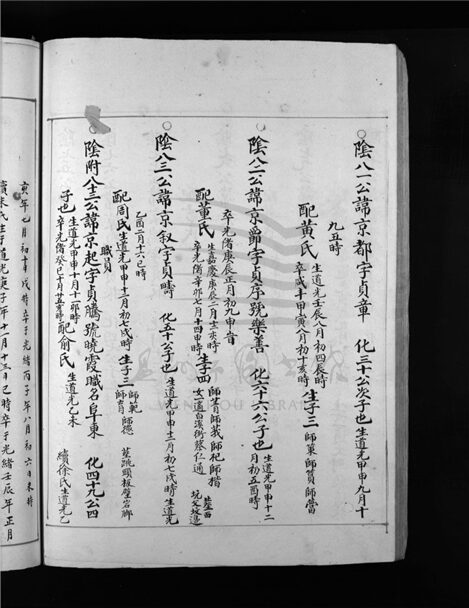 ○陰八一公諱京都字貞章 化三十公次子也生道光甲申九月十
九丑時
配黃氏 生道光壬辰八月初四辰時 卒咸丰甲寅八月初十亥時 生子三 師東師質師當
○陰八二公諱京爵字貞序號樂善 化六十六公子也 生道光甲申十二月初五酉時
卒光緒庚辰正月初九申時
配董氏 生嘉慶庚辰二月十二亥時 卒光緒辛卯七月十四申時 生子四 師莒師莪師杞師楷 女適白溪街蔡仁通
○陰八三公諱京叙字貞疇 化五十公子也 生道光甲申十二月初七戌時 生道光
乙酉二月十六
配周氏 生道光甲申十一月初七戌時 生子三 師範師德師書
職員
○陰附八三公諱京起字貞騰號曉霞職名阜東 化四九公四
子也 生道光甲申十月十一卯時 卒光緒癸巳十月 配俞氏 生道光乙未 續徐氏 生道光乙
寅年乙月初十 戌時 卒于光緒丙子年八月初六日未時
生于道光庚子年十一月十三日巳時卒于光緒壬辰年正月